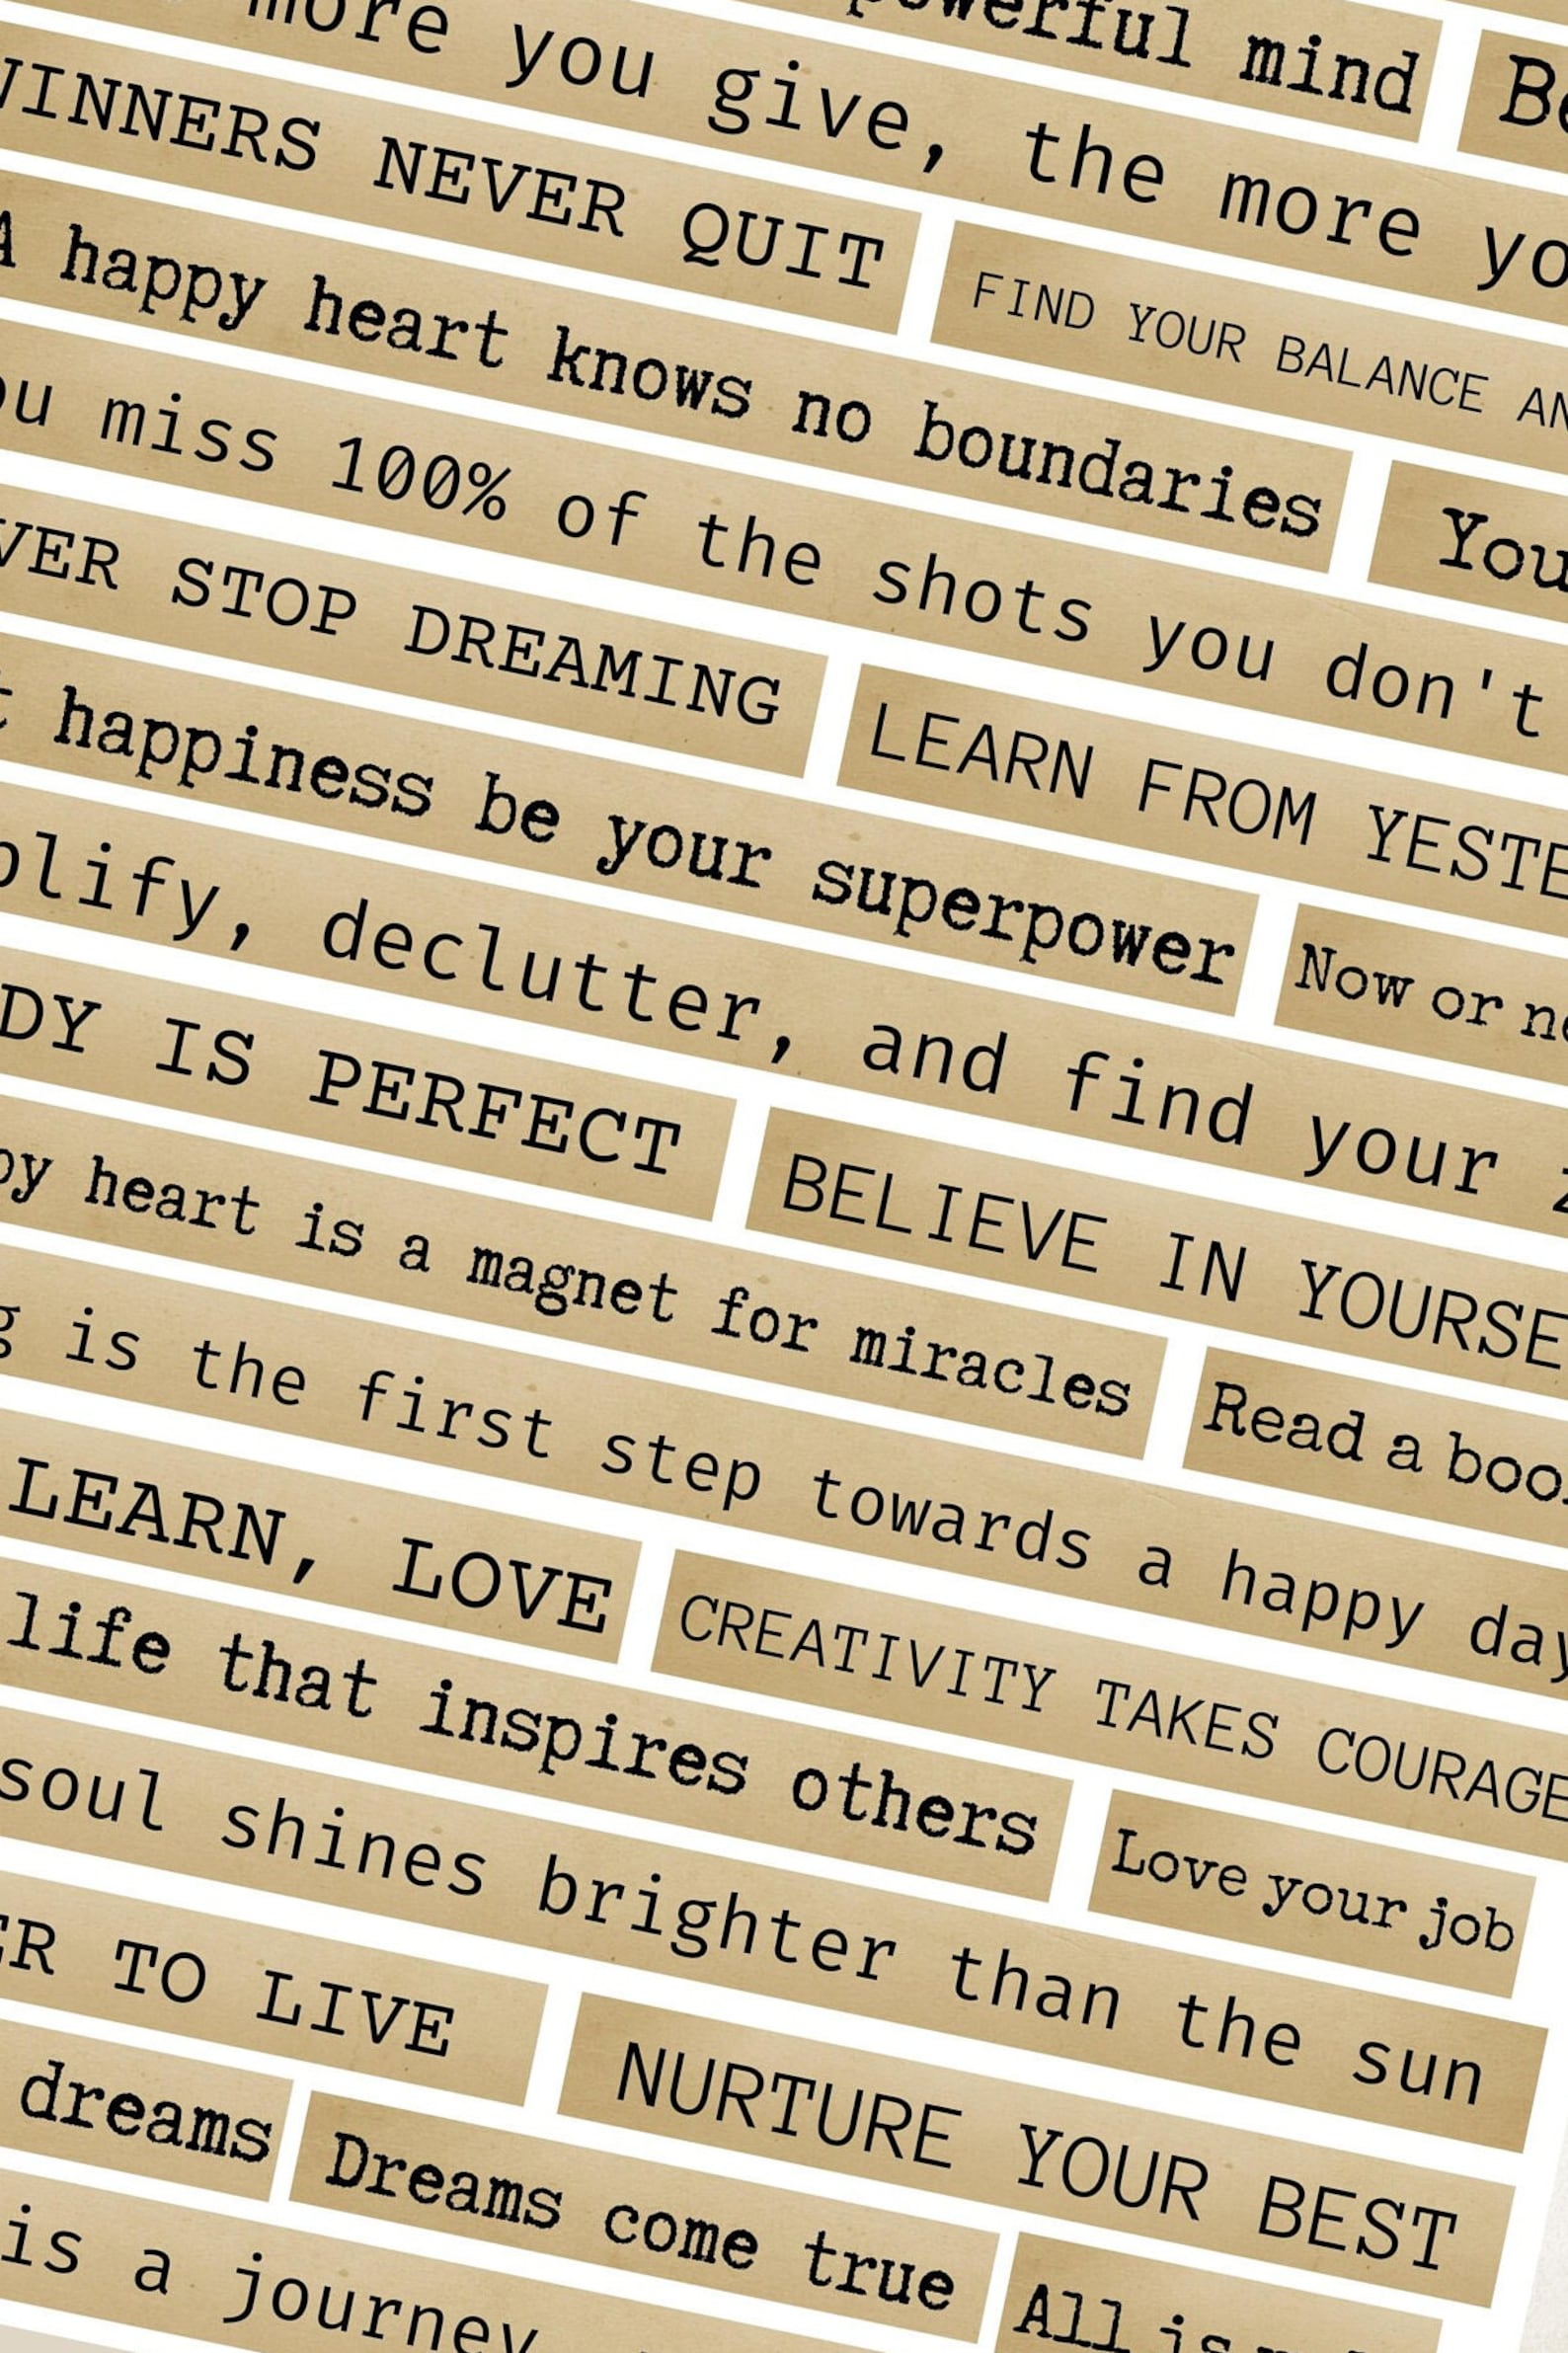 powerful mind
more you give, the more
WINNERS NEVER QUIT FIND YOUR BALANCE
A happy heart knows no boundaries You
miss 100% of the shots you don't
STOP DREAMING LEARN FROM
happiness be your superpower Now or
declutter, and find your
IS PERFECT BELIEVE IN
heart is a magnet for miracles Read a
is the first step towards a happy day
LEARN, LOVE CREATIVITY TAKES COURAGE
life that inspires others Love your job
soul shines brighter than the sun
TO LIVE NURTURE YOUR BEST
dreams Dreams come true All is
is a journey